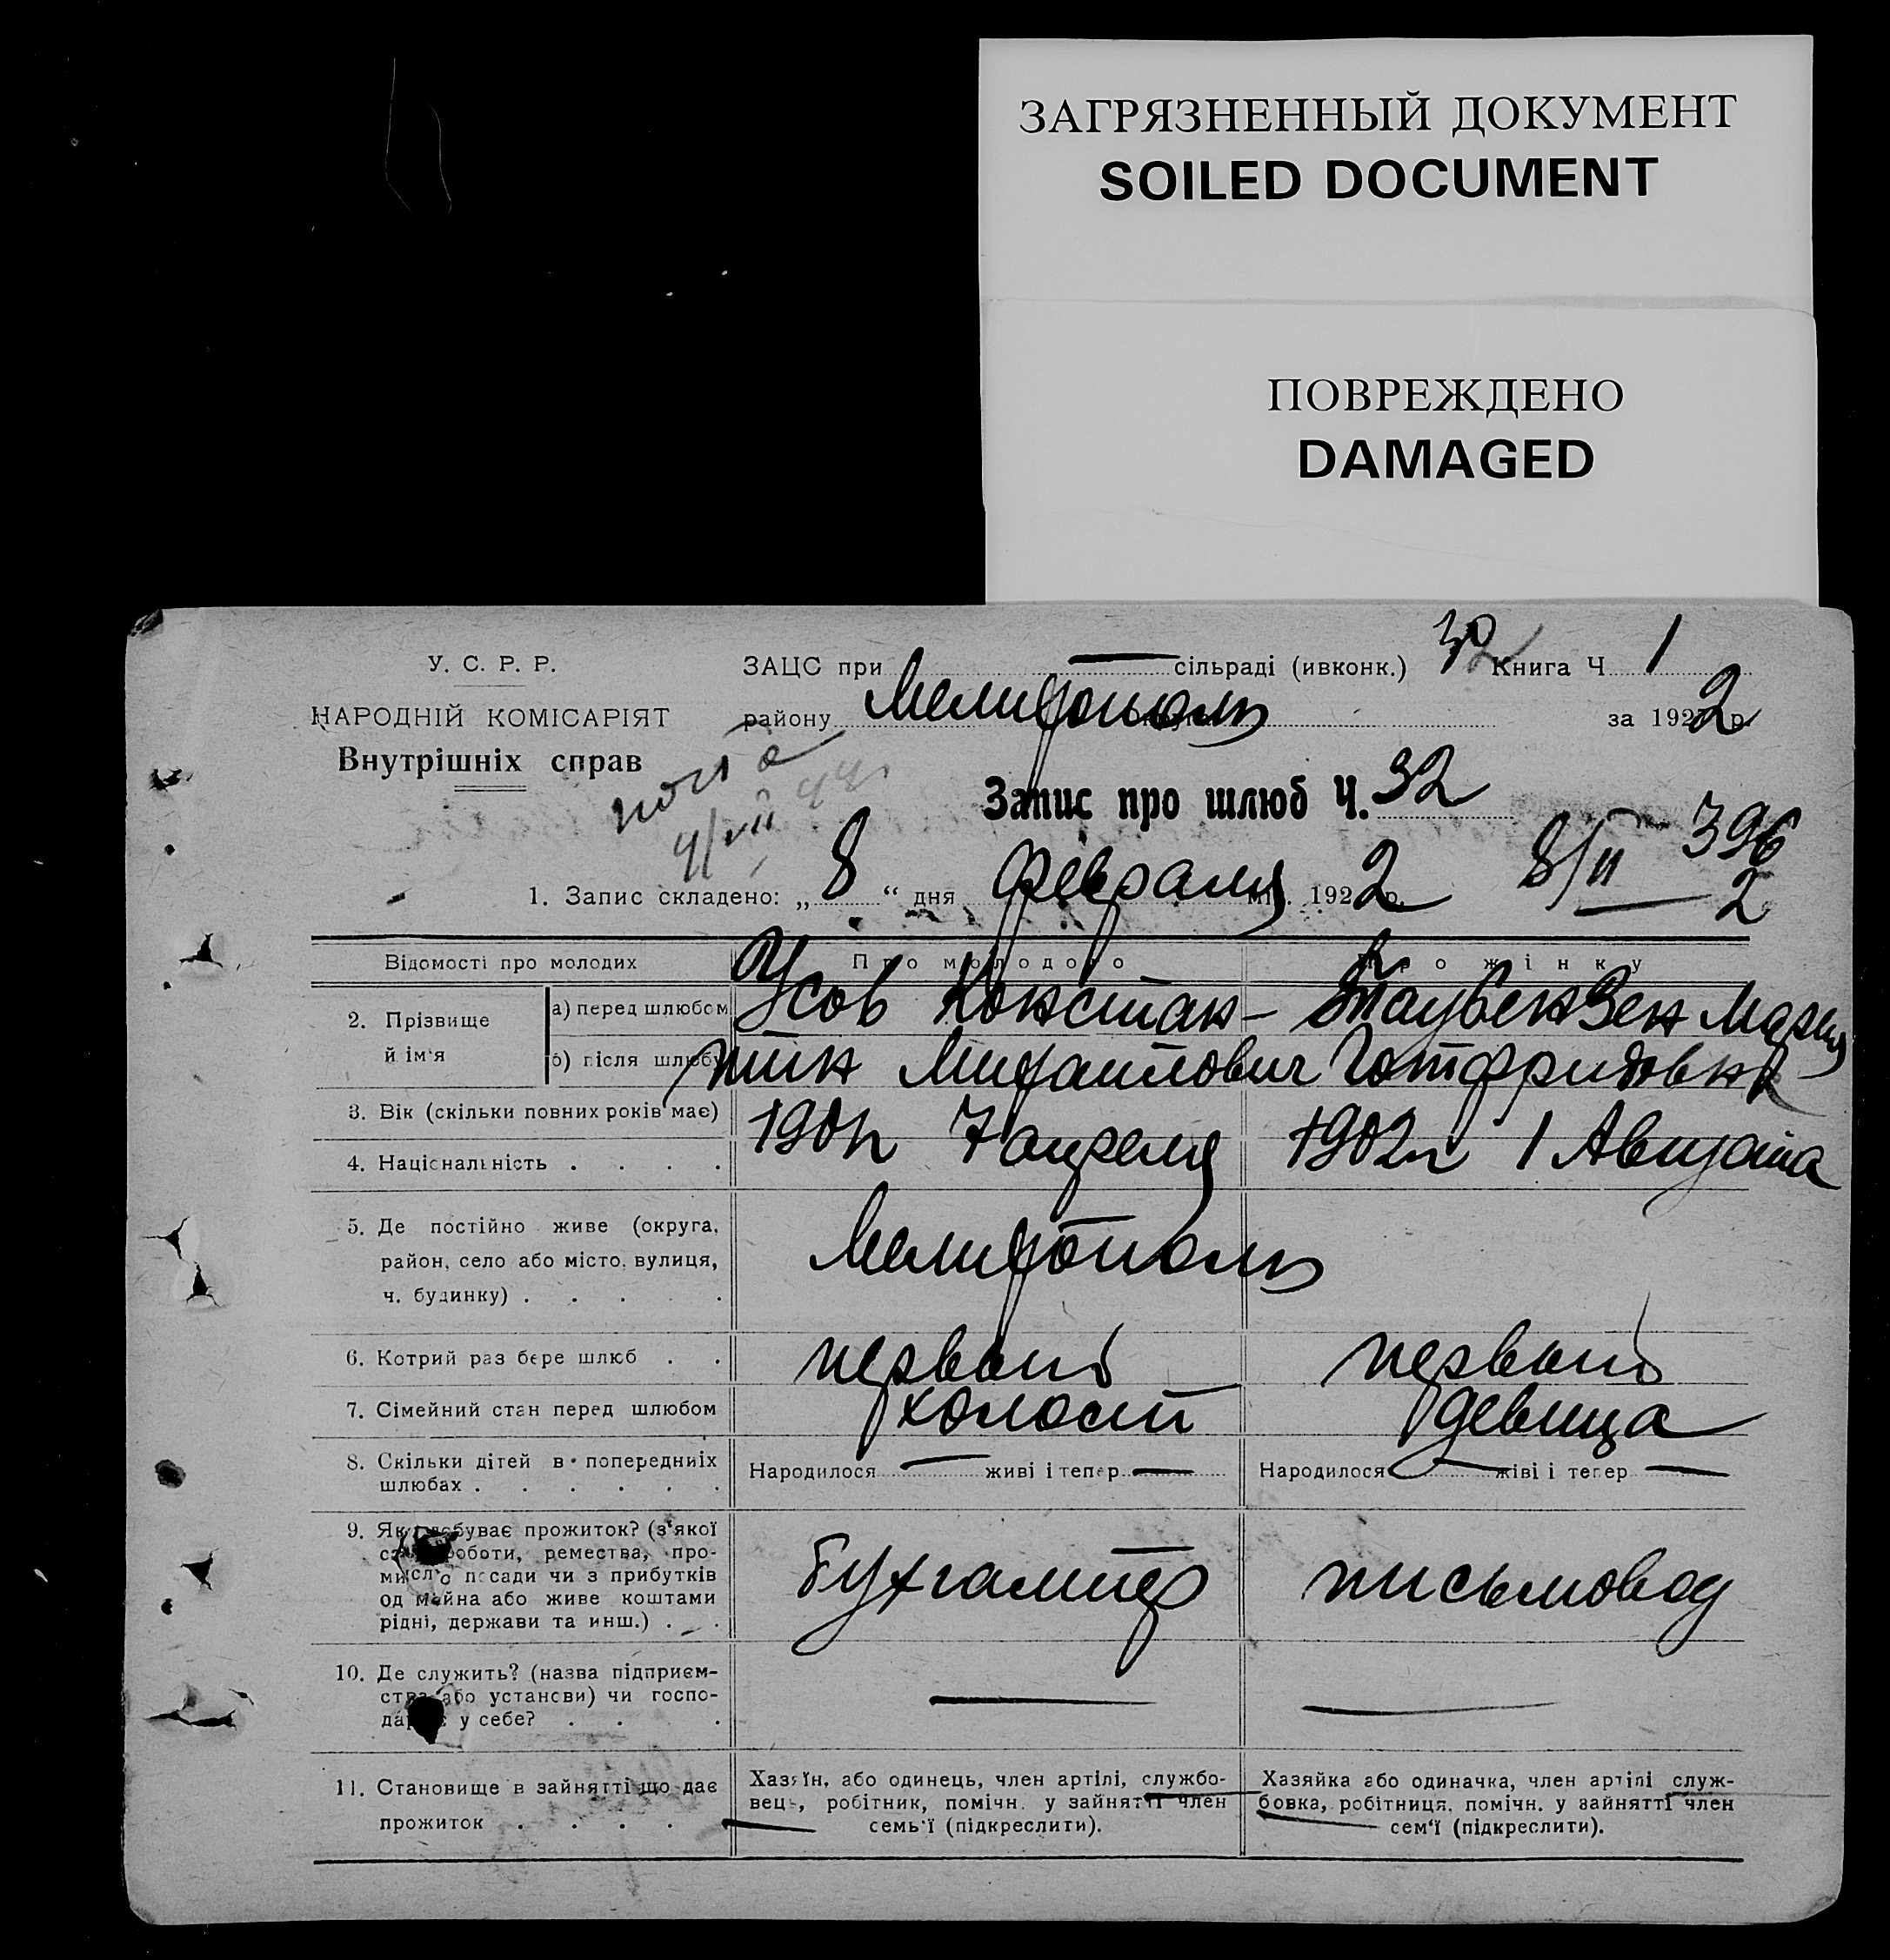 ЗАГРЯЗНЕННЫЙ ДОКУМЕНТ
SOILED DOCUMENT
ПОВРЕЖДЕНО
DAMAGED
У. С. Р. Р.
НАРОДНІЙ КОМІСАРІЯТ
Внутрішніх справ
ЗАЦС при — сільраді (ивконк.) 32 Книга Ч. 1
району Мелитополь за 1922 р.
Запис про шлюб Ч. 32
4/VII
8/II 396
2
1. Запис складено: „8“ дня февраля 1922 р.
Відомості про молодих Про молодого Про жінку
2. Прізвище й ім'я
а) перед шлюбом
б) після шлюбу
Усов Констан-
тин Михайлович
Таубензен Мария
Готфридовна
3. Вік (скільки повних років має)
4. Національність
1901 г 7 апреля 1902 г 1 Августа
5. Де постійно живе (округа,
район, село або місто, вулиця,
ч. будинку)
Мелитополь
6. Котрий раз бере шлюб первый первый
7. Сімейний стан перед шлюбом холост девица
8. Скільки дітей в попередниіх
шлюбах
Народилося — живі і тепер — Народилося — живі і тепер —
9. Як здобуває прожиток? (з'якої
роботи, ремества, про-
мислу посади чи з прибутків
од майна або живе коштами
рідні, держави та инш.)
Бухгалтер письмовод
10. Де служить? (назва підприєм-
ства або установи) чи госпо-
дарює у себе?
— —
11. Становище в зайнятті що дає
прожиток
Хазяїн, або одинець, член артілі, службо-
вець, робітник, помічн. у зайнятті член
семь'ї (підкреслити).
Хазяйка або одиначка, член артілі служ-
бовка, робітниця, помічн. у зайнятті член
сем'ї (підкреслити).